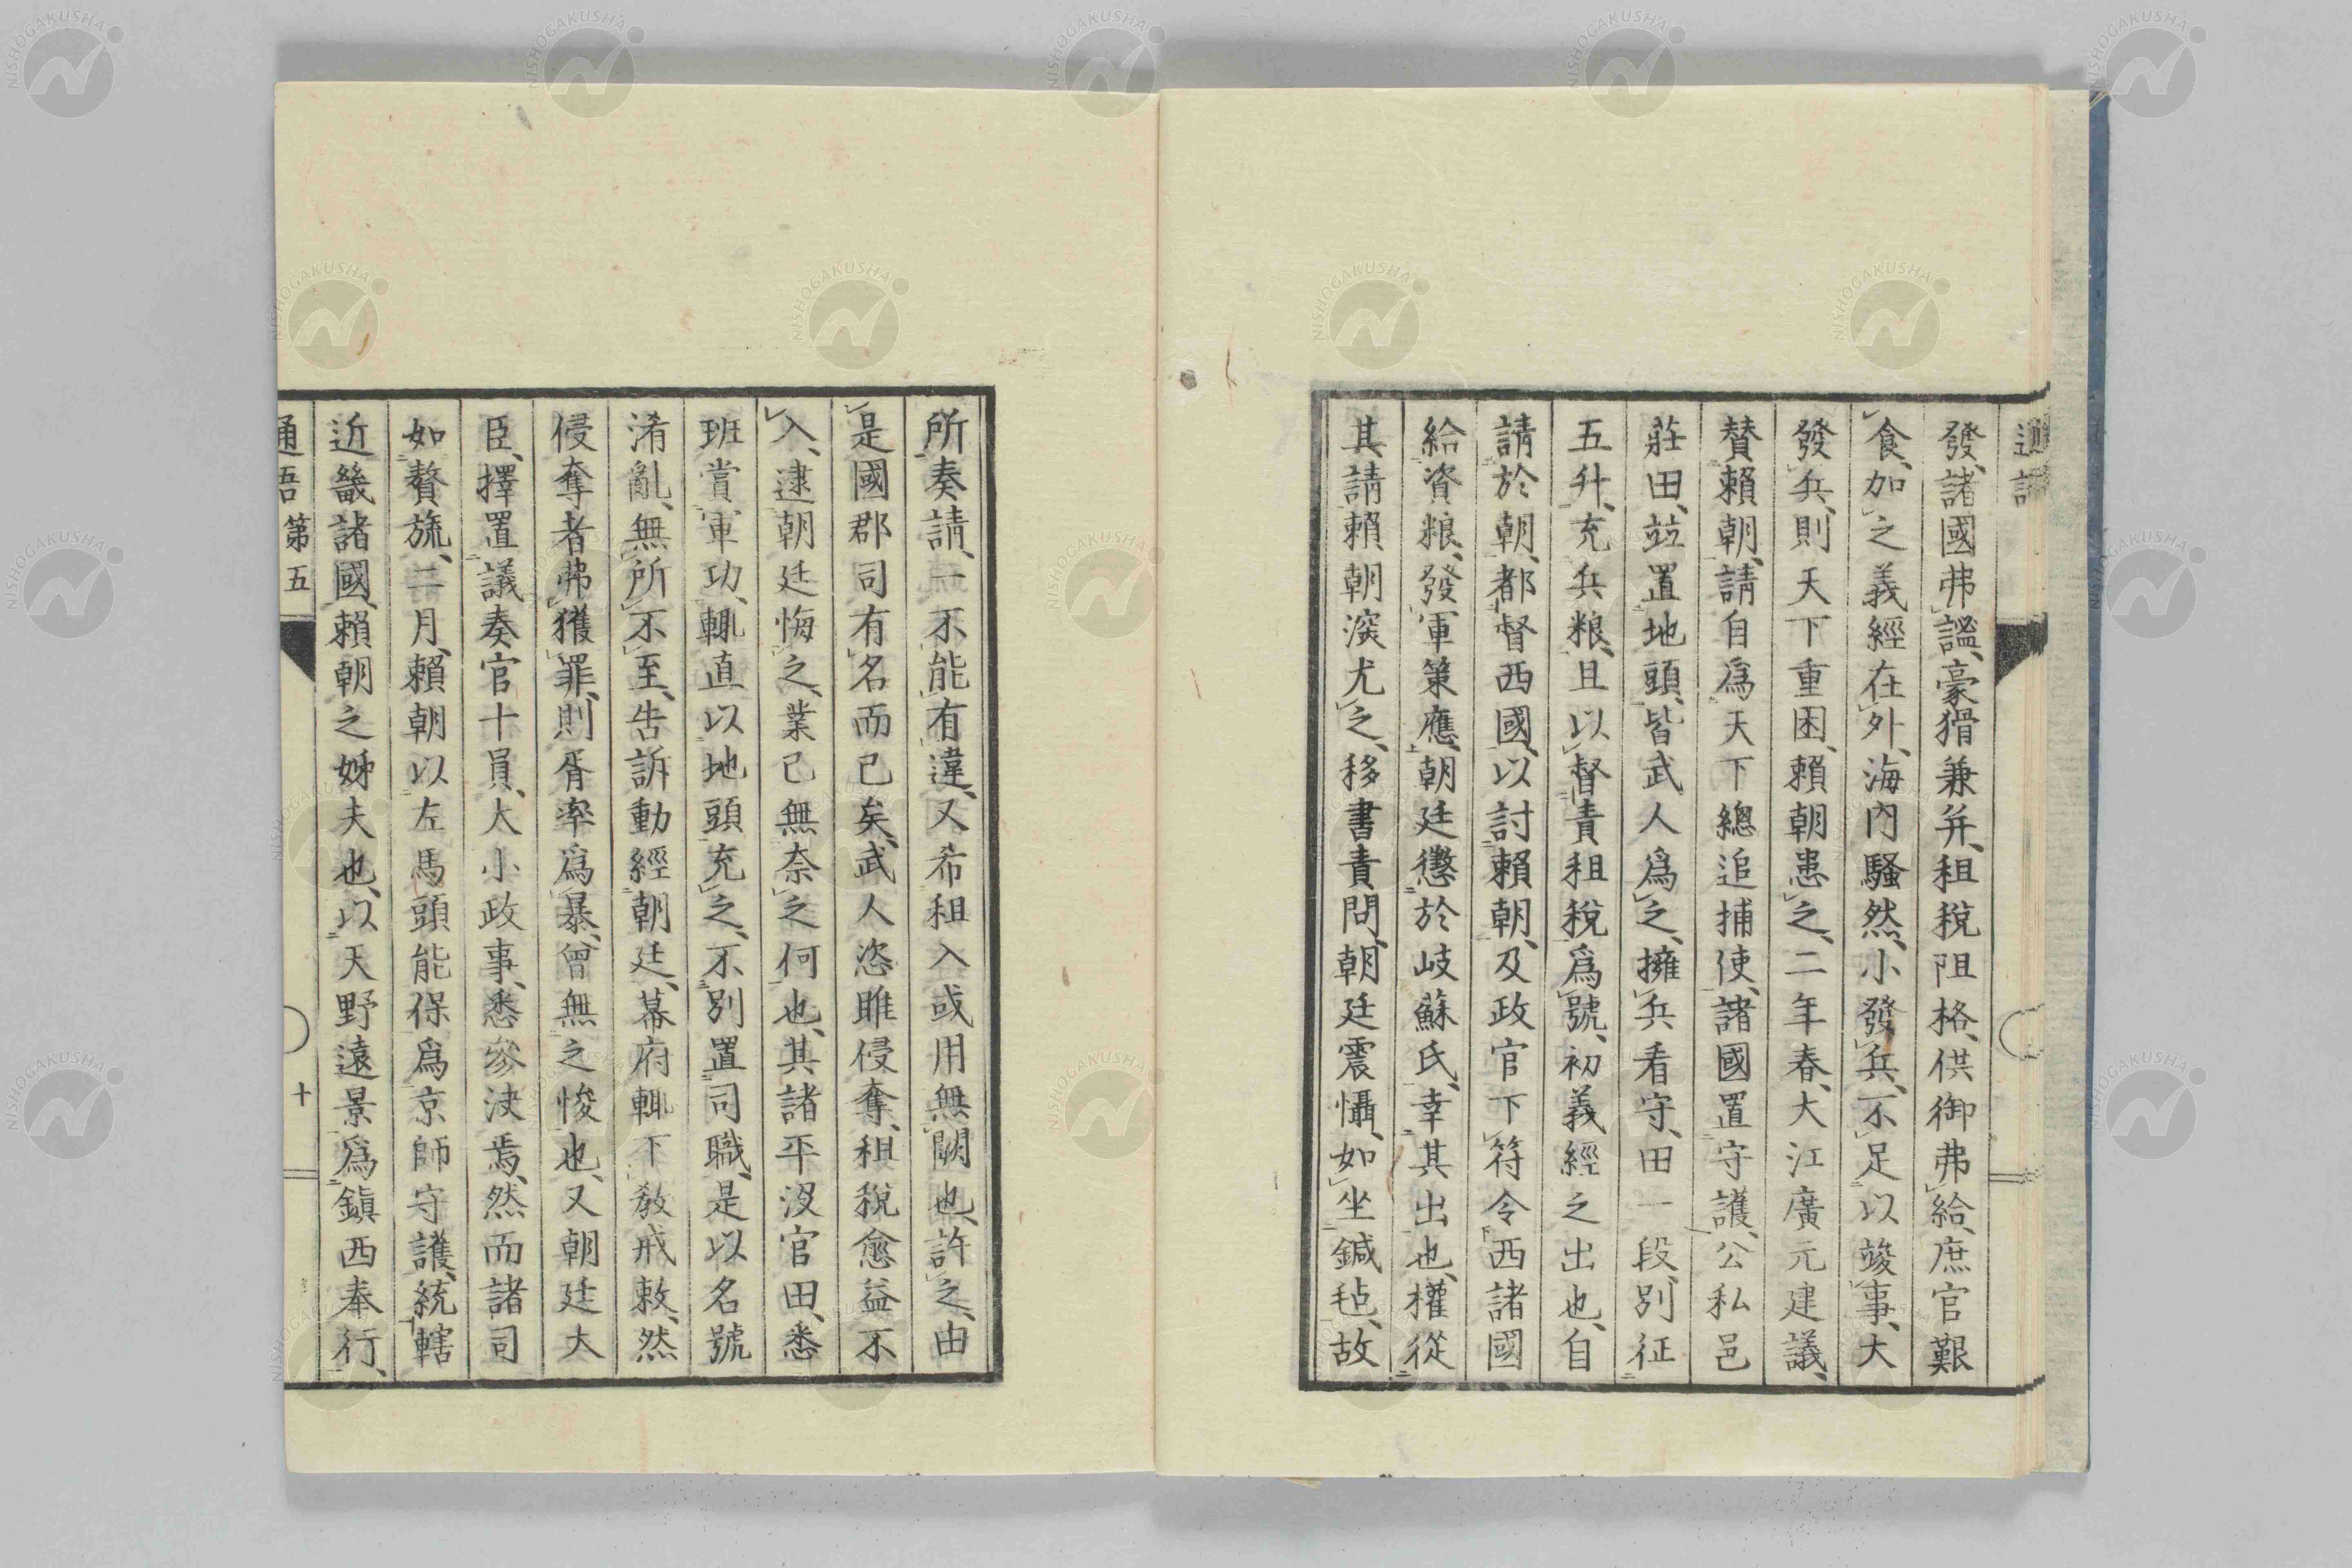 發、諸國弗謐、豪猾兼并、租稅阻格、供御弗給、庶官艱
食、加之義經在外、海內騷然、小發兵、不足以竣事、大
發兵、則天下重困、賴朝患之、二年春、大江廣元建議、
贊賴朝、請自爲天下總追捕使、諸國置守護、公私邑
莊田、竝置地頭、皆武人爲之、擁兵看守、田一段、別征
五升、充兵粮、且以督責租稅爲號、初義經之出也、自
請於朝、都督西國、以討賴朝、及政官下符令西諸國
給資粮、發軍策應、朝廷懲於岐蘇氏、幸其出也、權從
其請、賴朝深尤之、移書責問、朝廷震懾、如坐鍼氈、故
所奏請、一不能有違、又希租入或用無闕也、許之、由
是國郡司有名而已矣、武人恣睢侵奪、租稅愈益不
入、逮朝廷悔之、業已無奈之何也、其諸平沒官田、悉
班賞軍功、輒直以地頭充之、不別置司職、是以名號
淆亂、無所不至、告訴動經朝廷、幕府輒下教戒敕、然
侵奪者弗獲罪、則胥率爲暴、曾無之悛也、又朝廷大
臣、擇置議奏官十員、大小政事、悉參決焉、然而諸司
如贅旒、二月、賴朝以左馬頭能保爲京師守護、統轄
近畿諸國、賴朝之姊夫也、以天野遠景爲鎭西奉行、
通語 第五 十
NISHOGAKUSHA